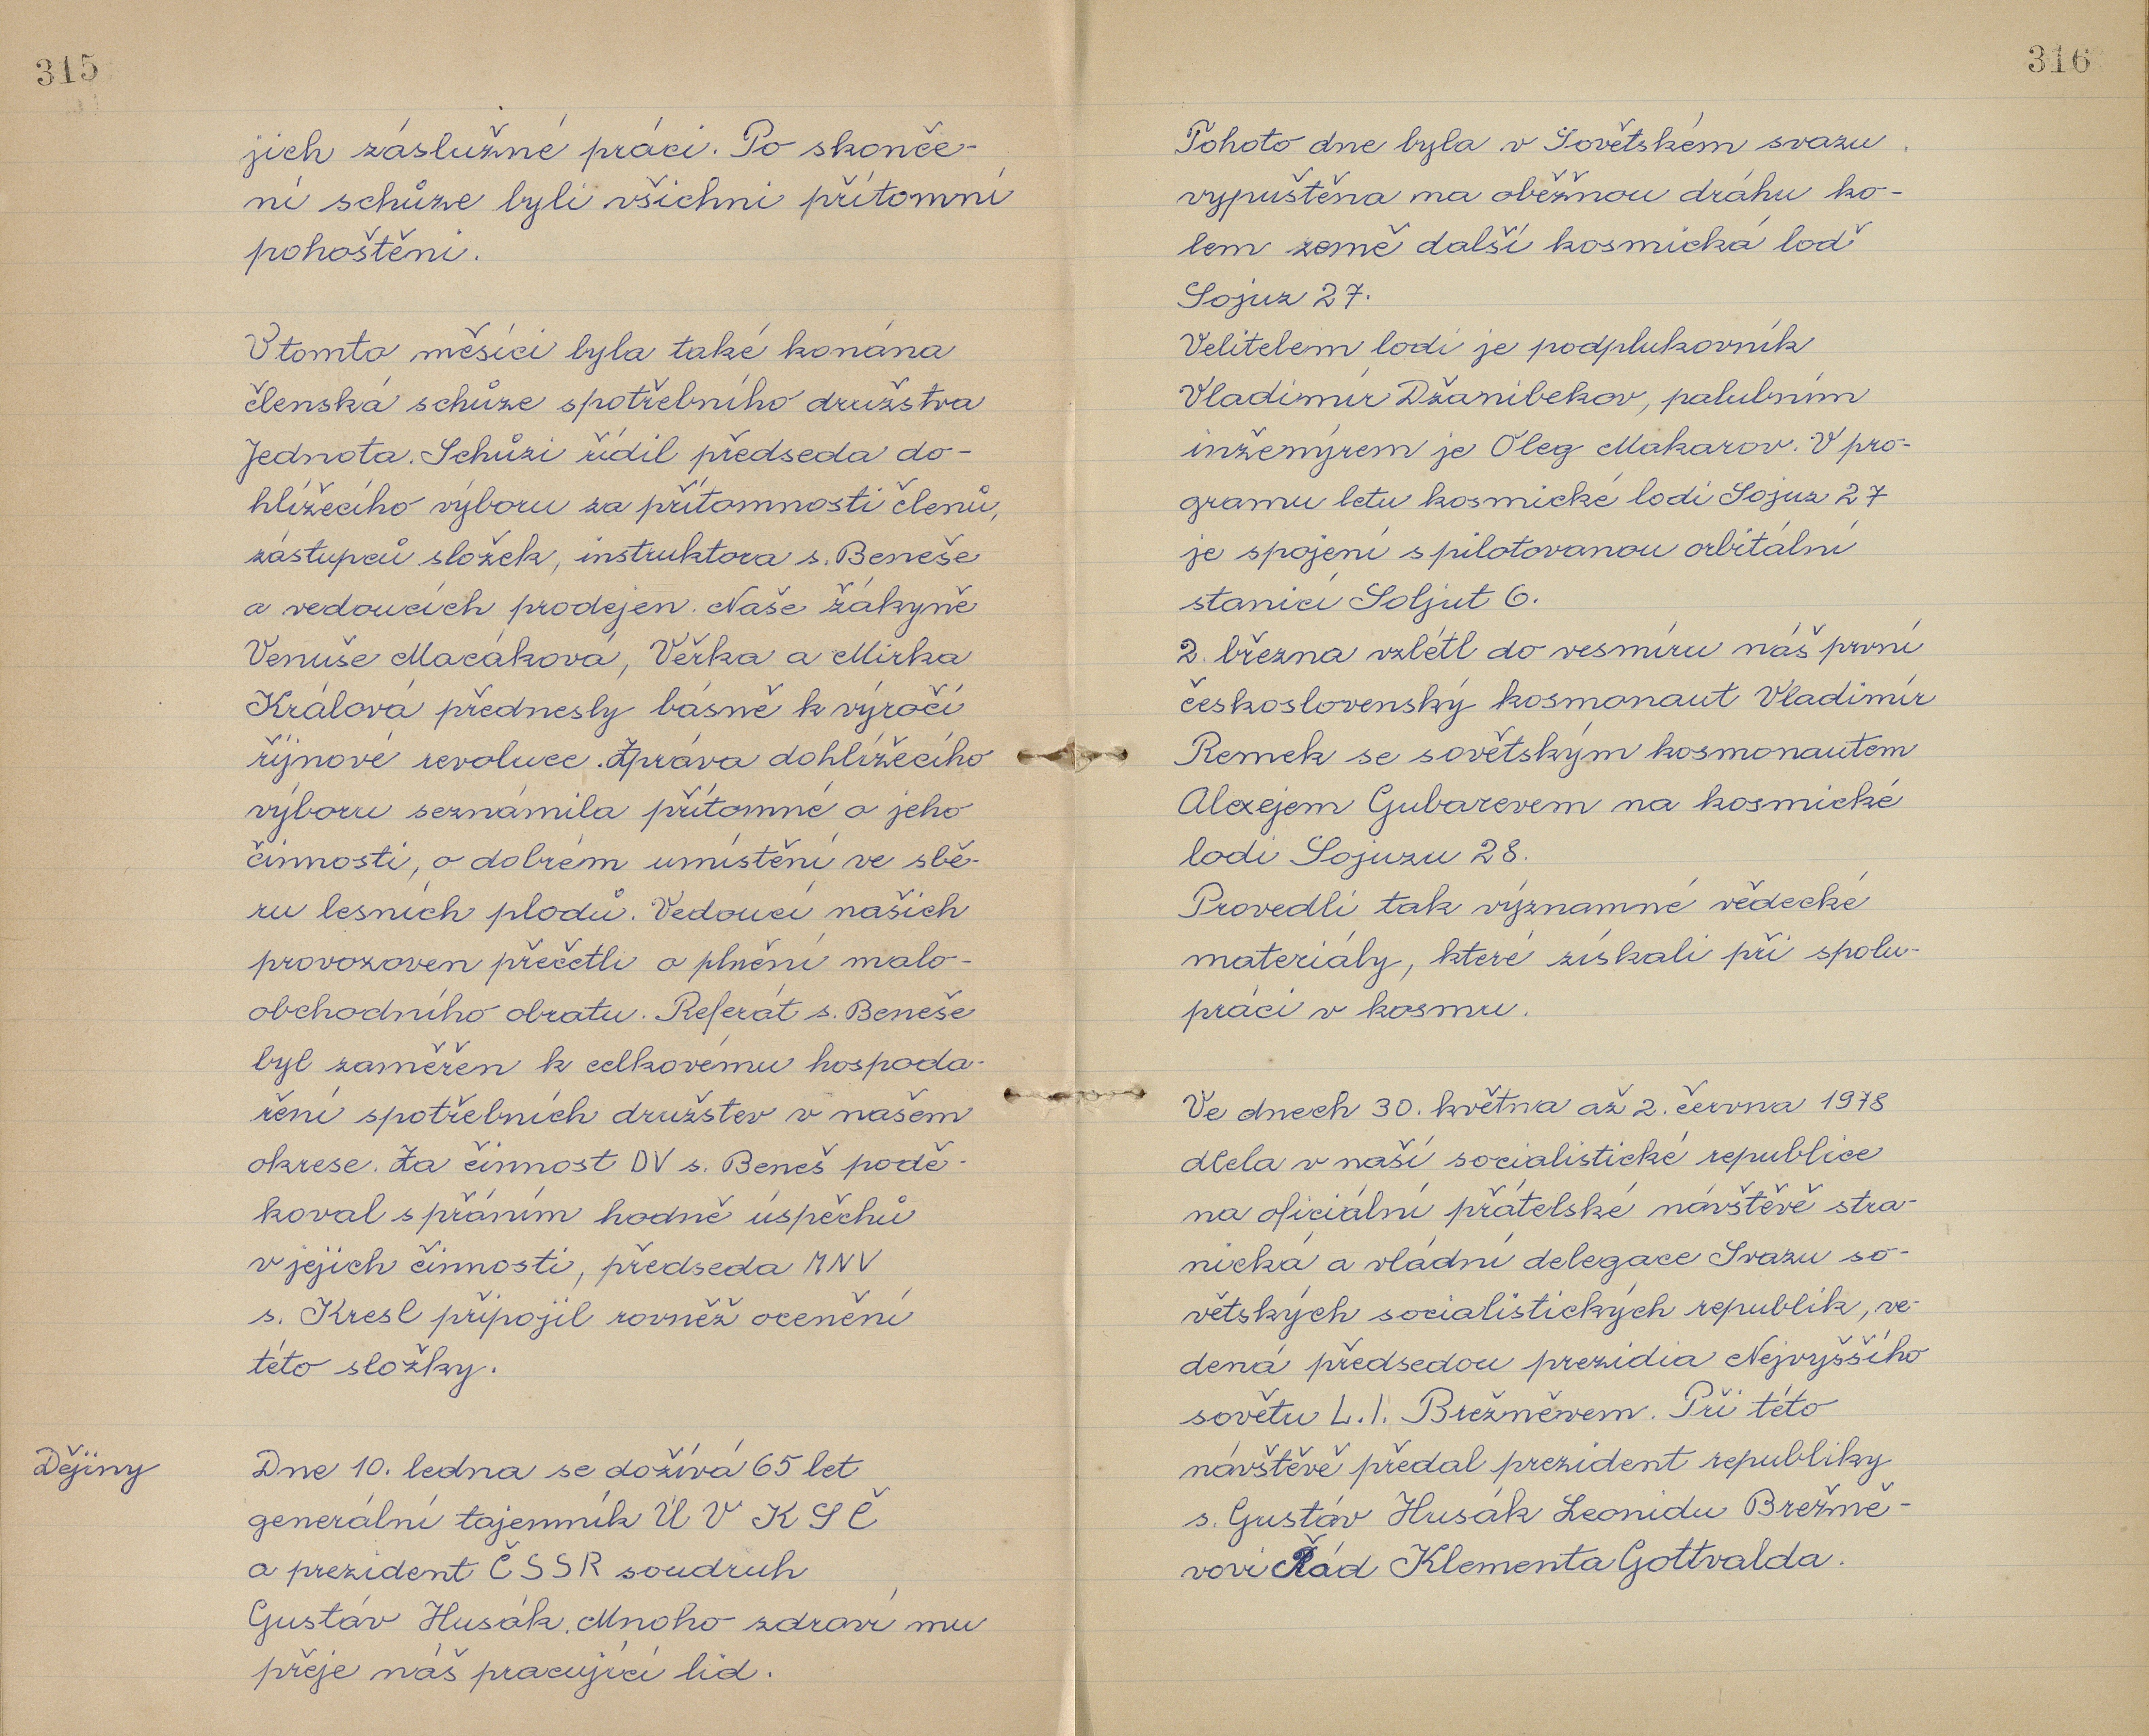 315
jich záslužné práci. Po skonče-
ní schůze byli všichni přítomní
pohoštěni.
V tomto měsíci byla také konána
členská schůze spotřebního družstva
Jednota. Schůzi řídil předseda do-
hlížecího výboru za přítomnosti členů,
zástupců složek, instruktora s. Beneše
a vedoucích prodejen. Naše žákyně
Venuše Macáková, Věrka a Mirka
Králová přednesly básně k výročí
říjnové revoluce. Zpráva dohlížecího
výboru seznámila přítomné o jeho
činnosti, o dobrém umístění ve sbě-
ru lesních plodů. Vedoucí našich
provozoven přečetli o plnění malo-
obchodního obratu. Referát s. Beneše
byl zaměřen k celkovému hospoda-
ření spotřebních družstev v našem
okrese. Za činnost DV s. Beneš podě-
koval s přáním hodně úspěchů
v jejich činnosti, předseda MNV
s. Kresl připojil rovněž ocenění
této složky.
Dějiny
Dne 10. ledna se dožívá 65 let
generální tajemník ÚV KSČ
a prezident ČSSR soudruh
Gustáv Husák. Mnoho zdraví mu
přeje náš pracující lid.
316
Tohoto dne byla v Sovětském svazu
vypuštěna na oběžnou dráhu ko-
lem země další kosmická loď
Sojuz 27.
Velitelem lodi je podplukovník
Vladimír Džanibekov, palubním
inženýrem je Oleg Makarov. V pro-
gramu letu kosmické lodi Sojuz 27
je spojení s pilotovanou orbitální
stanicí Soljut 6.
2. března vzlétl do vesmíru náš první
československý kosmonaut Vladimír
Remek se sovětským kosmonautem
Alexejem Gubarevem na kosmické
lodi Sojuzu 28.
Provedli tak významné vědecké
materiály, které získali při spolu-
práci v kosmu.
Ve dnech 30. května až 2. června 1978
dlela v naší socialistické republice
na oficiální přátelské návštěvě stra-
nická a vládní delegace Svazu so-
větských socialistických republik, ve-
dená předsedou prezidia Nejvyššího
sovětu L.I. Brežněvem. Při této
návštěvě předal prezident republiky
s. Gustáv Husák Leonidu Brežně-
vovi Řád Klementa Gottvalda.